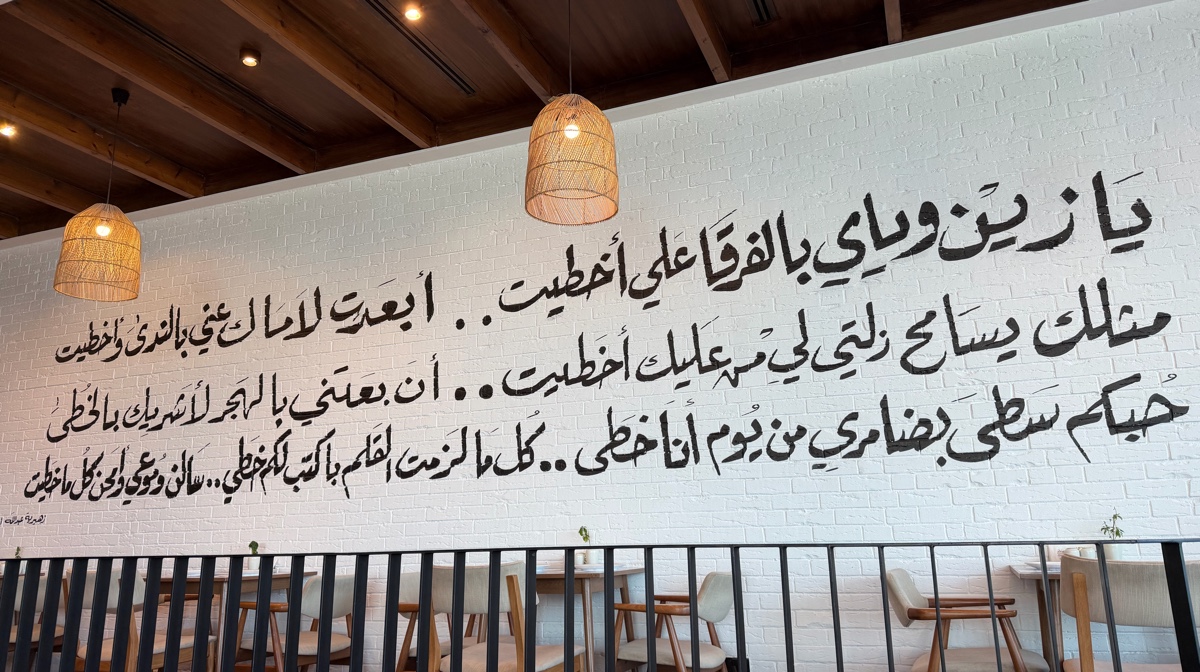 يا زين وياي بالفرقا علي أخطيت .. أبعدت لاماك عني بالندى وأخطيت
مثلك يسامح زلتي لي من عليك أخطيت .. أن بعتني بالهجر لأشريك بالخطى
حبكم سطى بضامري من يوم أنا خطى .. كل ما لزمت القلم باكتب لكم خطي .. سالن دموعي وأمحن كل ما خطيت